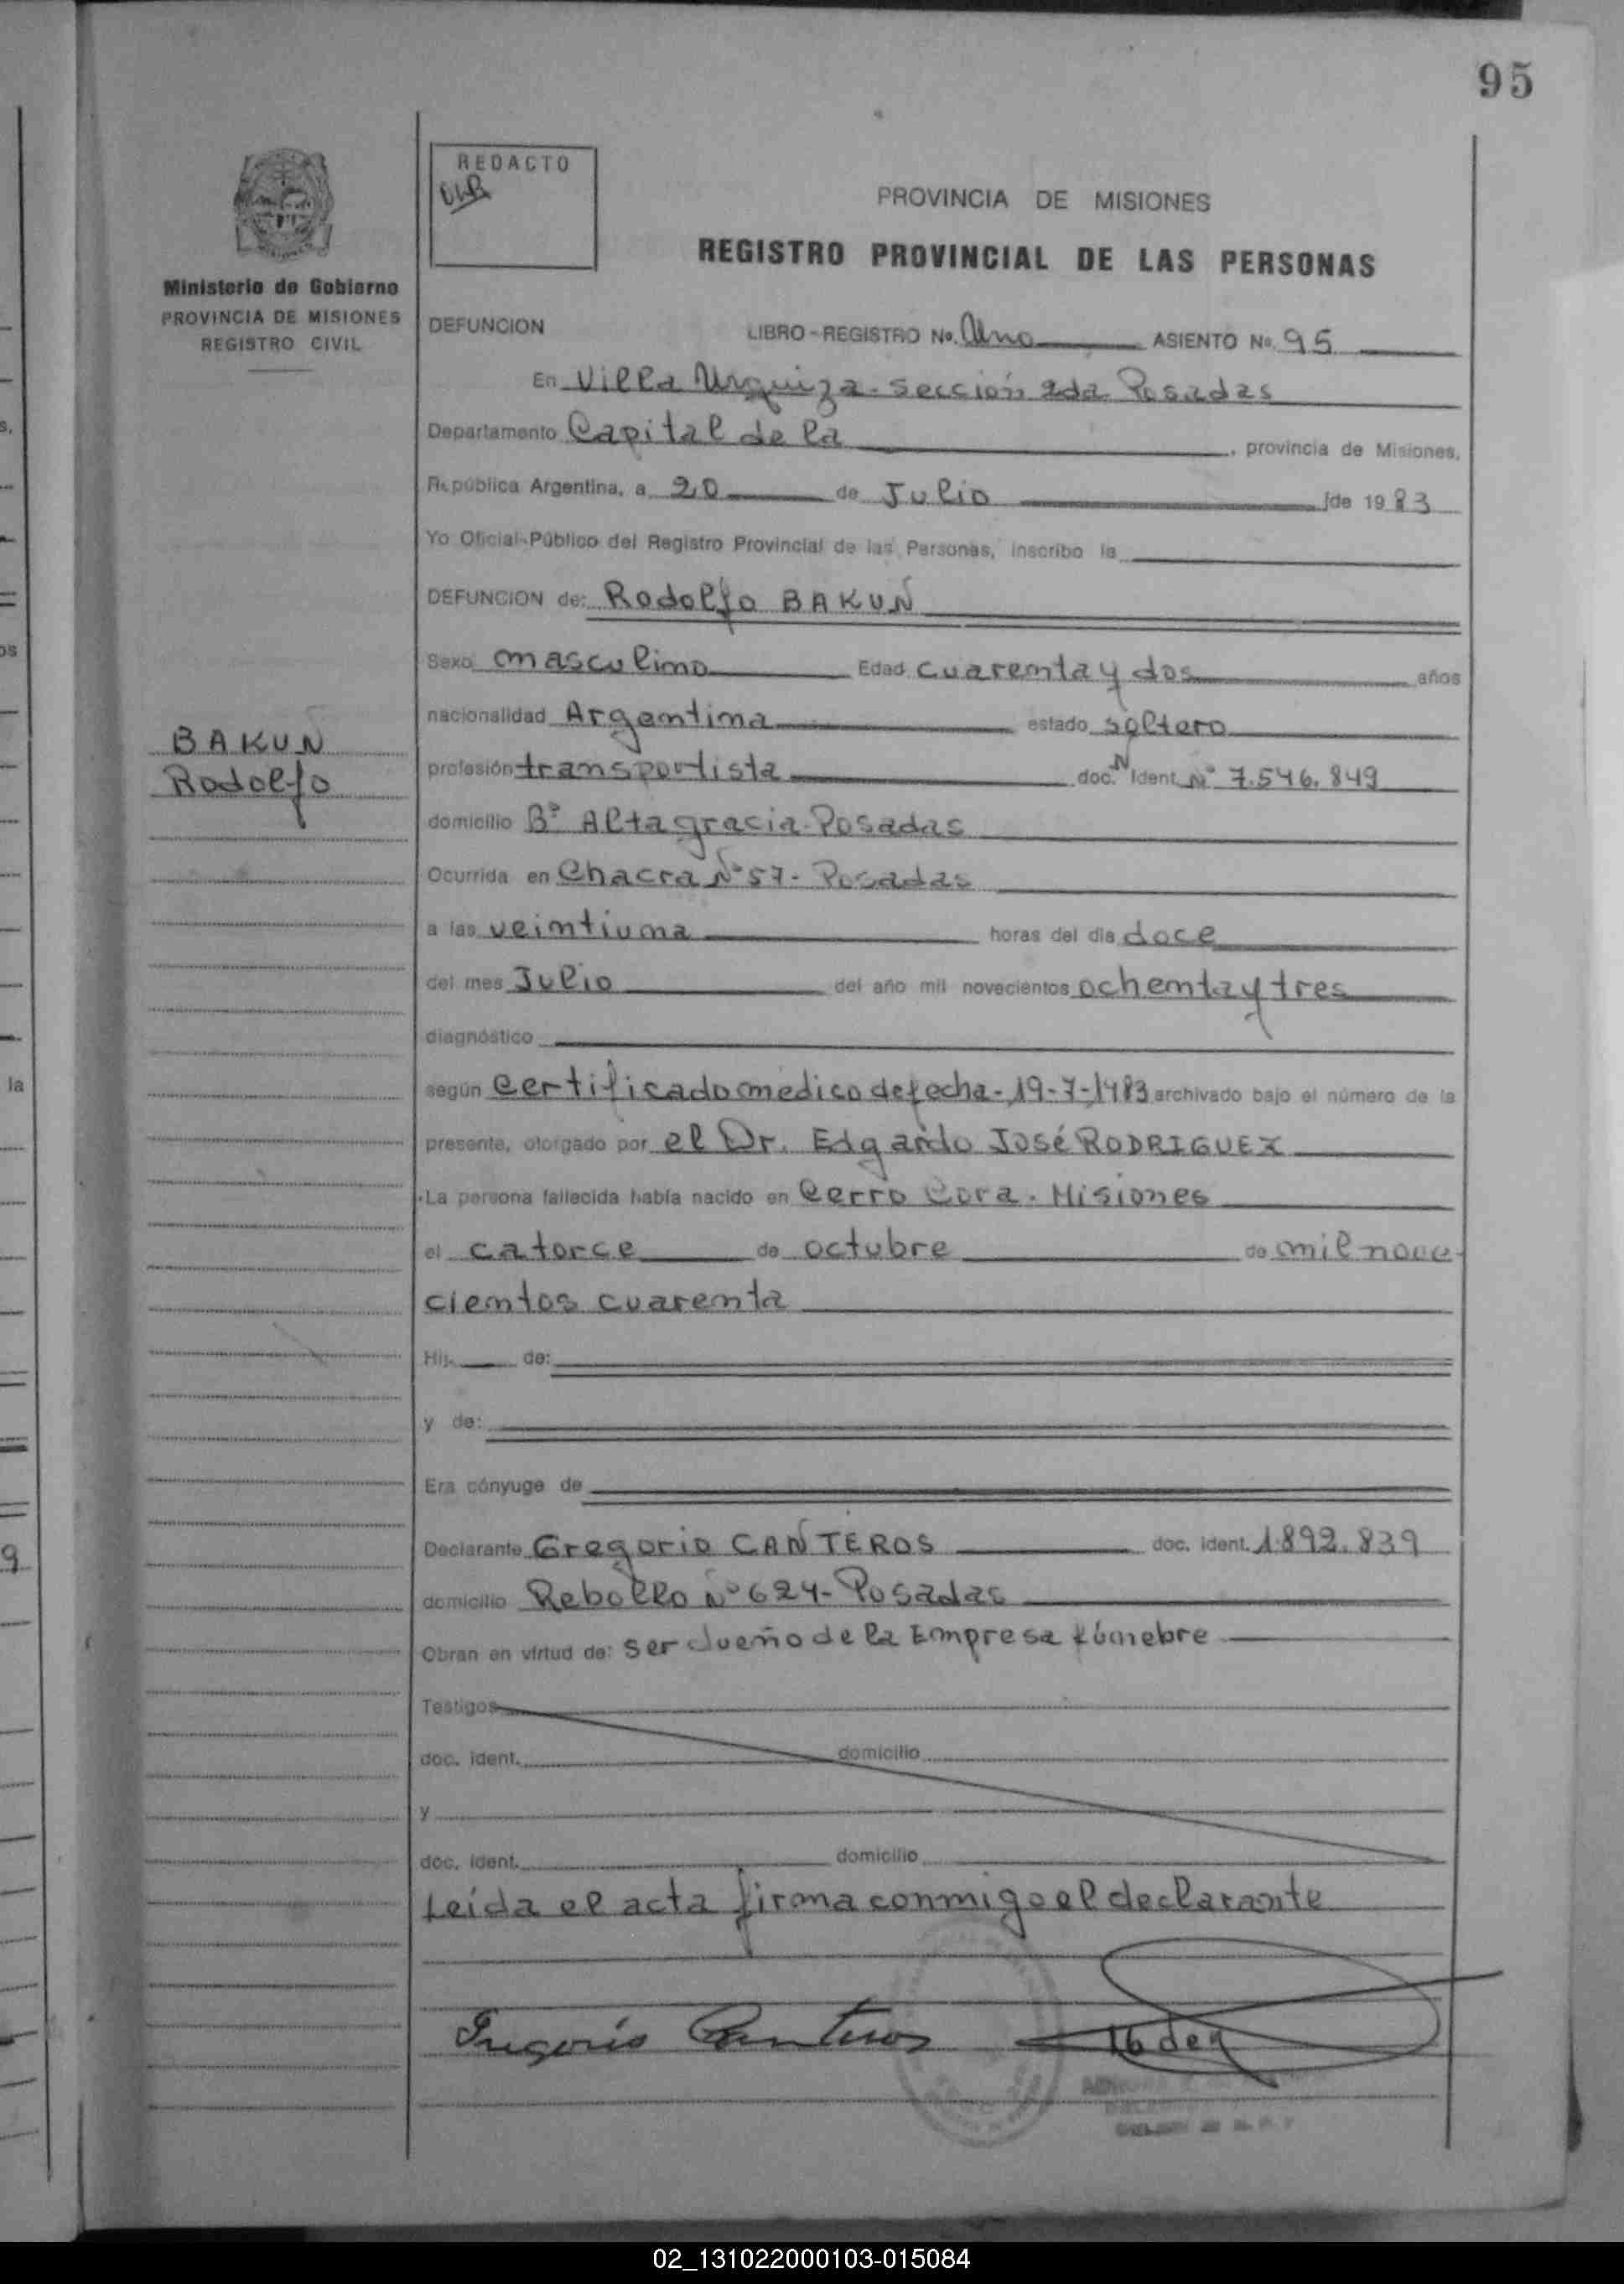 95
REDACTO
PROVINCIA DE MISIONES
REGISTRO PROVINCIAL DE LAS PERSONAS
Ministerio de Gobierno
PROVINCIA DE MISIONES
REGISTRO CIVIL
DEFUNCION LIBRO-REGISTRO No. Uno ASIENTO No. 95
En Villa Urquiza - Sección 2da Posadas
Departamento Capital de la , provincia de Misiones,
República Argentina, a 20 de Julio de 1983
Yo Oficial-Público del Registro Provincial de las Personas, inscribo la
DEFUNCION de: Rodolfo BAKUN
Sexo masculino Edad cuarenta y dos años
nacionalidad Argentina estado soltero
BAKUN
Rodolfo
profesión transportista doc. N Ident. Nº 7.546.849
domicilio Bº Altagracia - Posadas
Ocurrida en Chacra Nº 57 - Posadas
a las veintiuna horas del día doce
del mes Julio del año mil novecientos ochenta y tres
diagnóstico
según Certificado medico de fecha - 19-7-1983 archivado bajo el número de la
presente, otorgado por el Dr. Edgardo José RODRIGUEZ
La persona fallecida había nacido en Cerro Cora - Misiones
el catorce de octubre de mil nove
cientos cuarenta
Hij de:
y de:
Era cónyuge de
Declarante Gregorio CANTEROS doc. ident. 1.892.839
domicilio Rebollo Nº 624 - Posadas
Obran en virtud de: ser dueño de la Empresa fúnebre
Testigos
doc. ident. domicilio
y
doc. ident. domicilio
Leída el acta firma conmigo el declarante
Gregorio Canteros
02_131022000103-015084